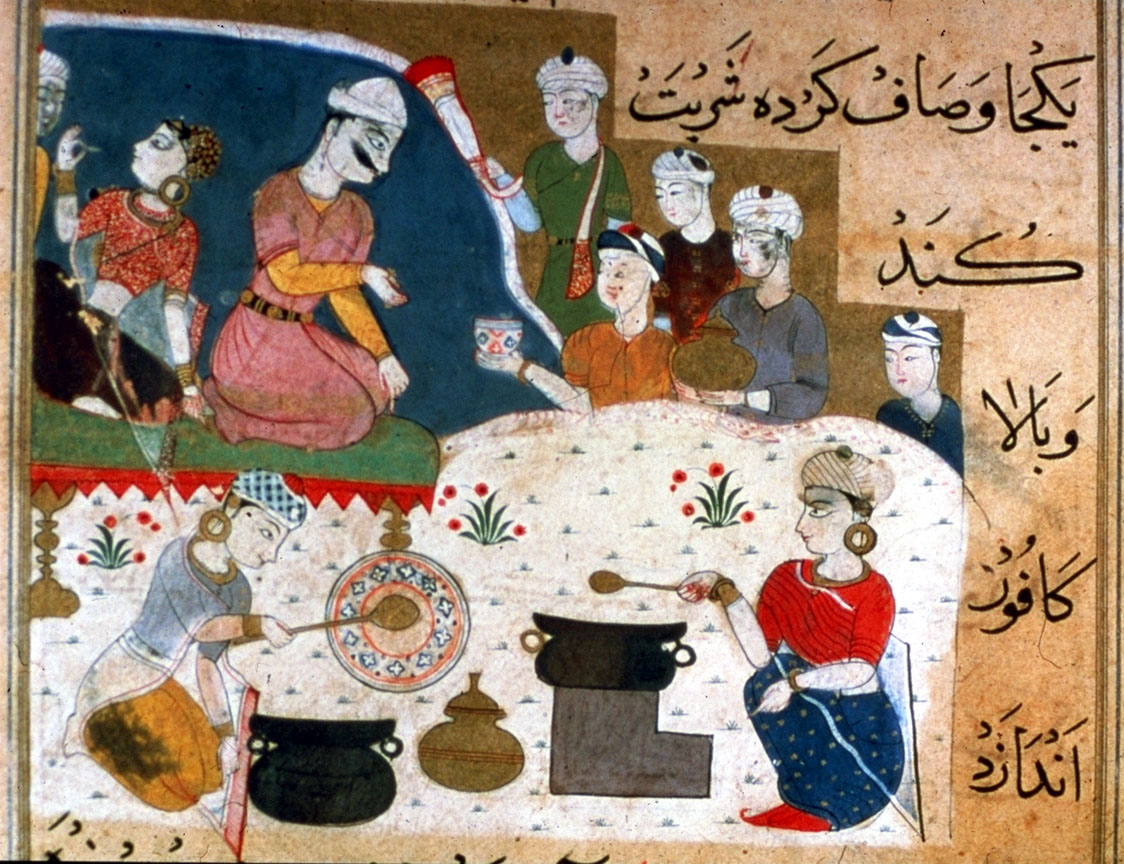 یَکْجَا وَ صَافْ کَرْدَه شَرْبَتْ
کُنَدْ
وَ بَالَا
کَافُوْر
اَنْدَازَدْ